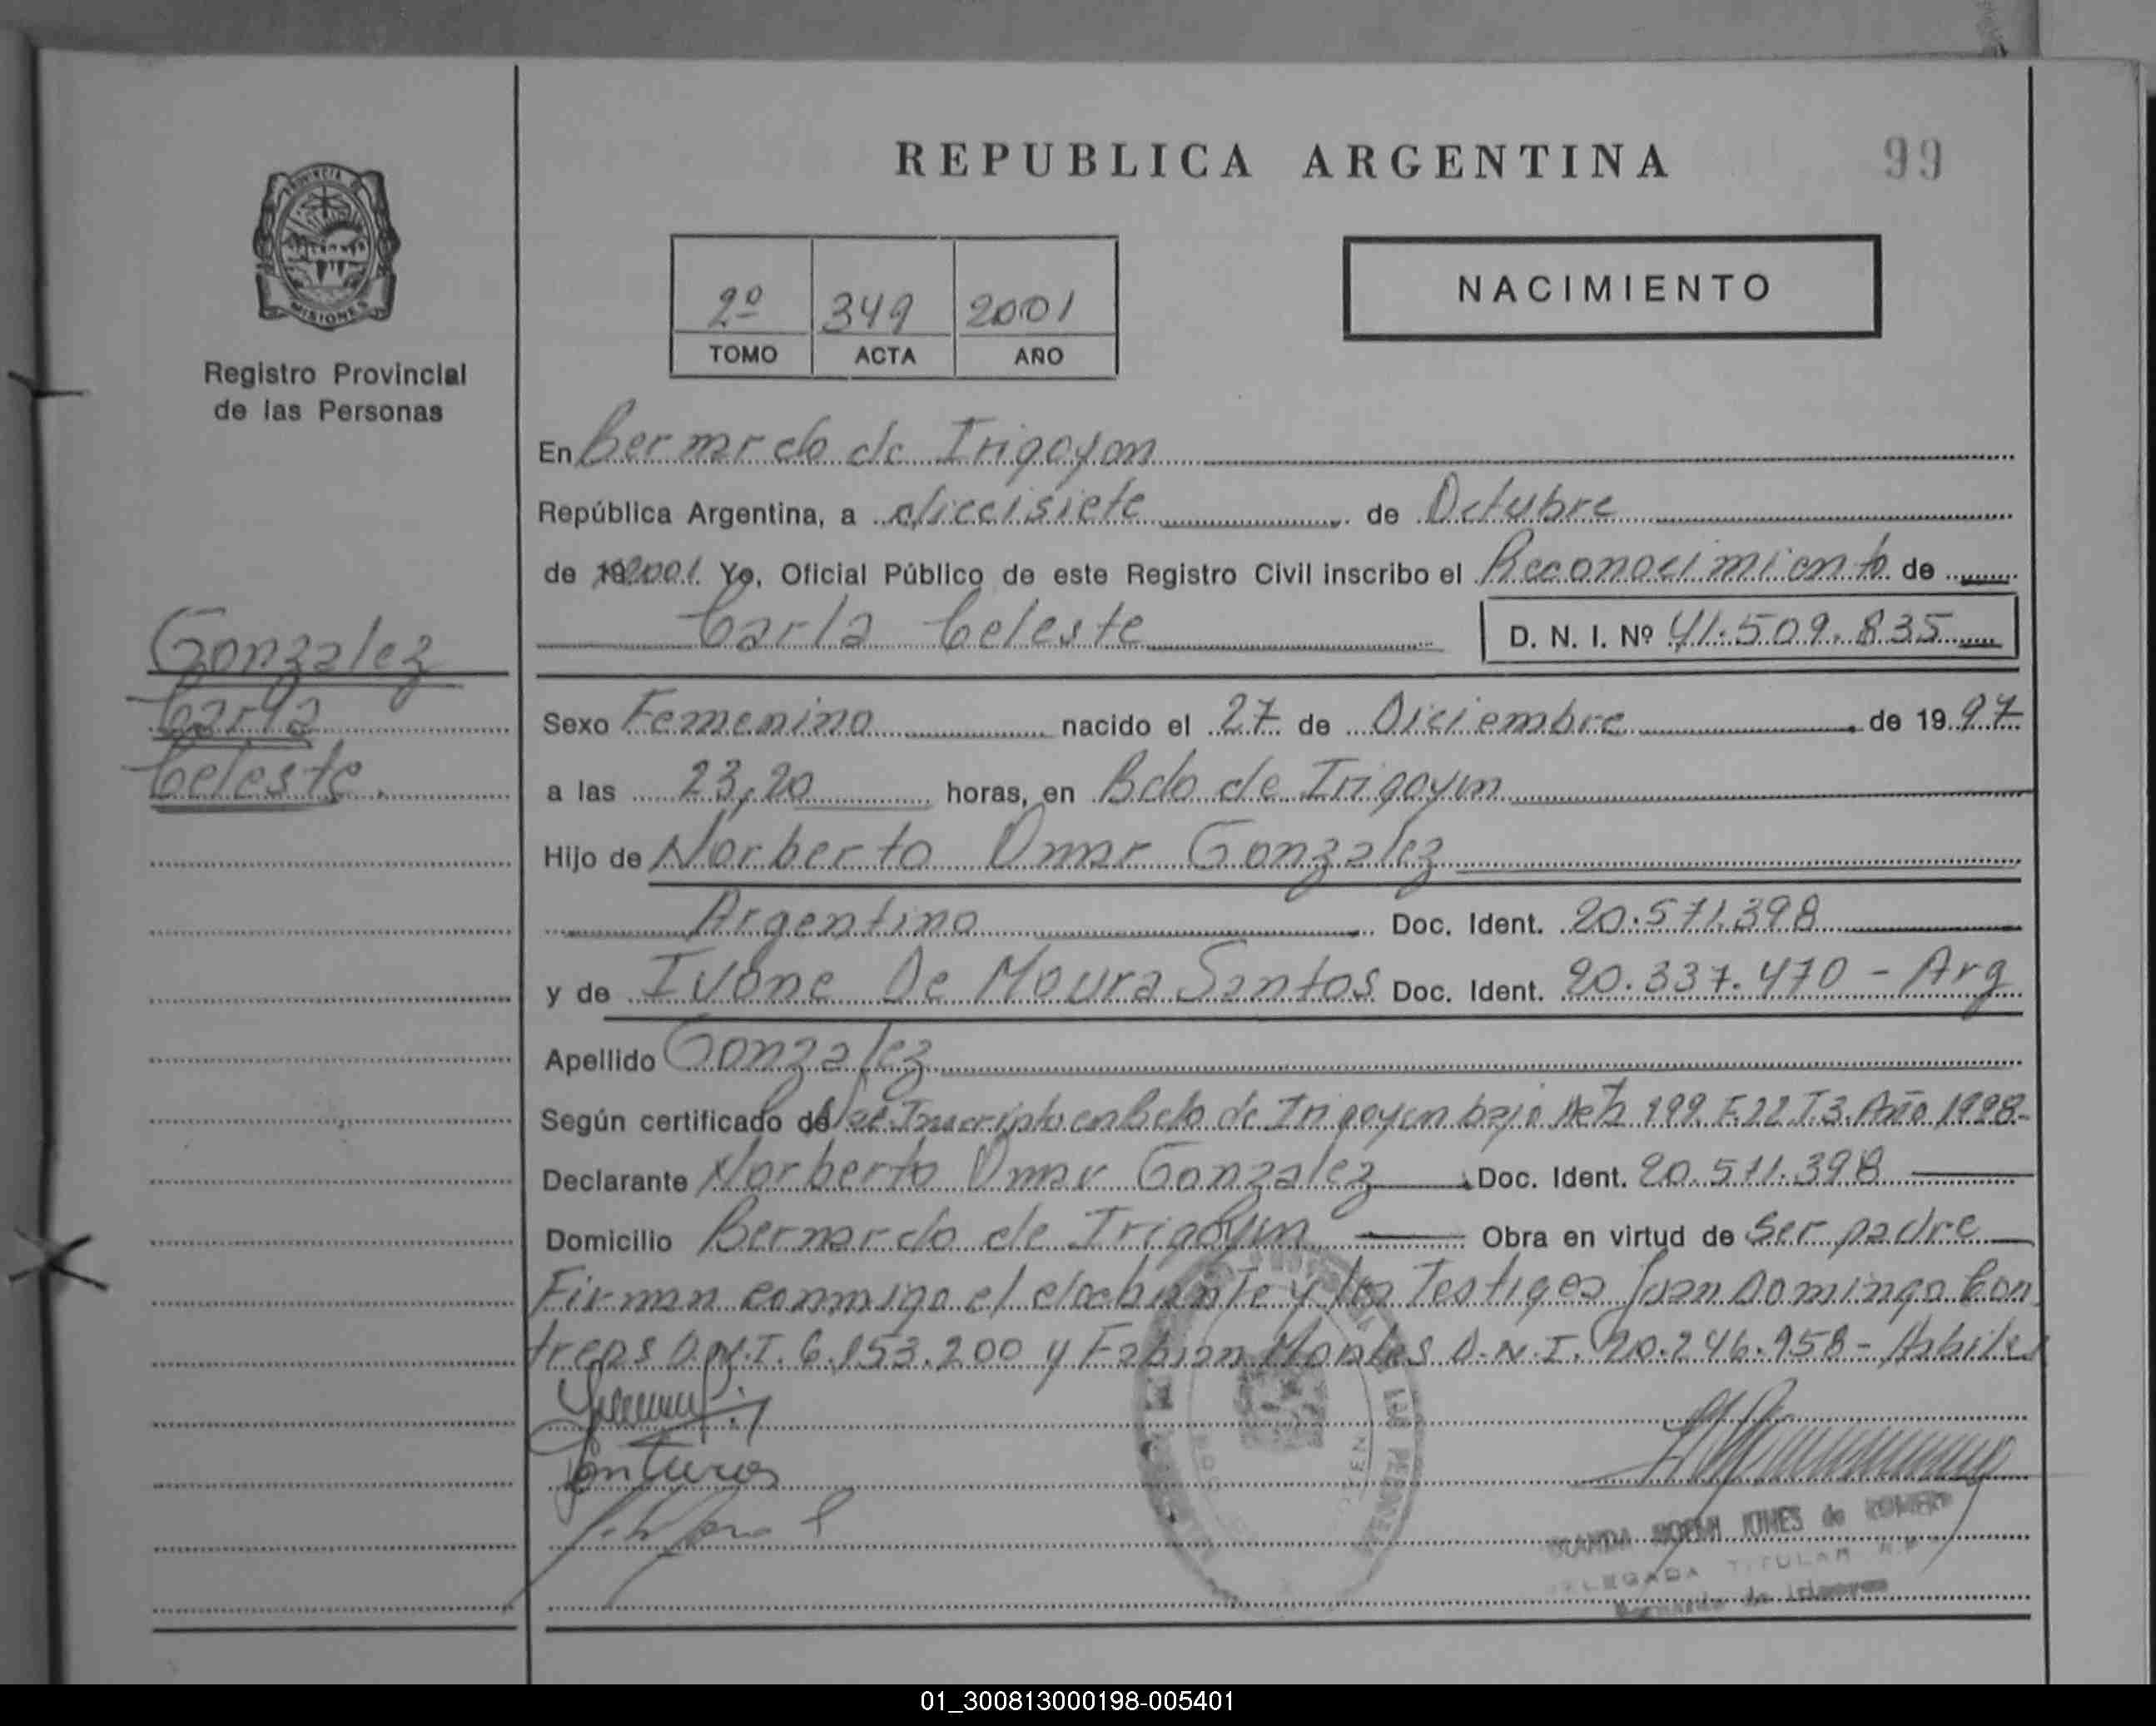 REPUBLICA ARGENTINA
99
PROVINCIA DE
MISIONES
Registro Provincial
de las Personas
2º 349 2001
TOMO ACTA AÑO
NACIMIENTO
Gonzalez
Carla
Celeste.
En Bernardo de Irigoyen
República Argentina, a diecisiete de Octubre
de 192001. Yo, Oficial Público de este Registro Civil inscribo el Reconocimiento de
Carla Celeste D. N. I. Nº 41.509.835
Sexo Femenino nacido el 27 de Diciembre de 19 97
a las 23,20 horas, en Bdo de Irigoyen
Hijo de Norberto Omar Gonzalez
Argentino Doc. Ident. 20.571.398
y de Ivone De Moura Santos Doc. Ident. 20.337.470 - Arg
Apellido Gonzalez
Según certificado de Nac. Inscripto en Bdo de Irigoyen bajo Acta 199. F.22 T.3. Año 1998-
Declarante Norberto Omar Gonzalez Doc. Ident. 20.571.398
Domicilio Bernardo de Irigoyen Obra en virtud de Ser padre
Firman conmigo el y los Testigos Juan Domingo Con
treras D.N.I. 6.153.200 y Fabian D.N.I. 20.246.958 - Habiles
JONES de ROMERO
DELEGADA TITULAR
Bernardo de Irigoyen
01_300813000198-005401